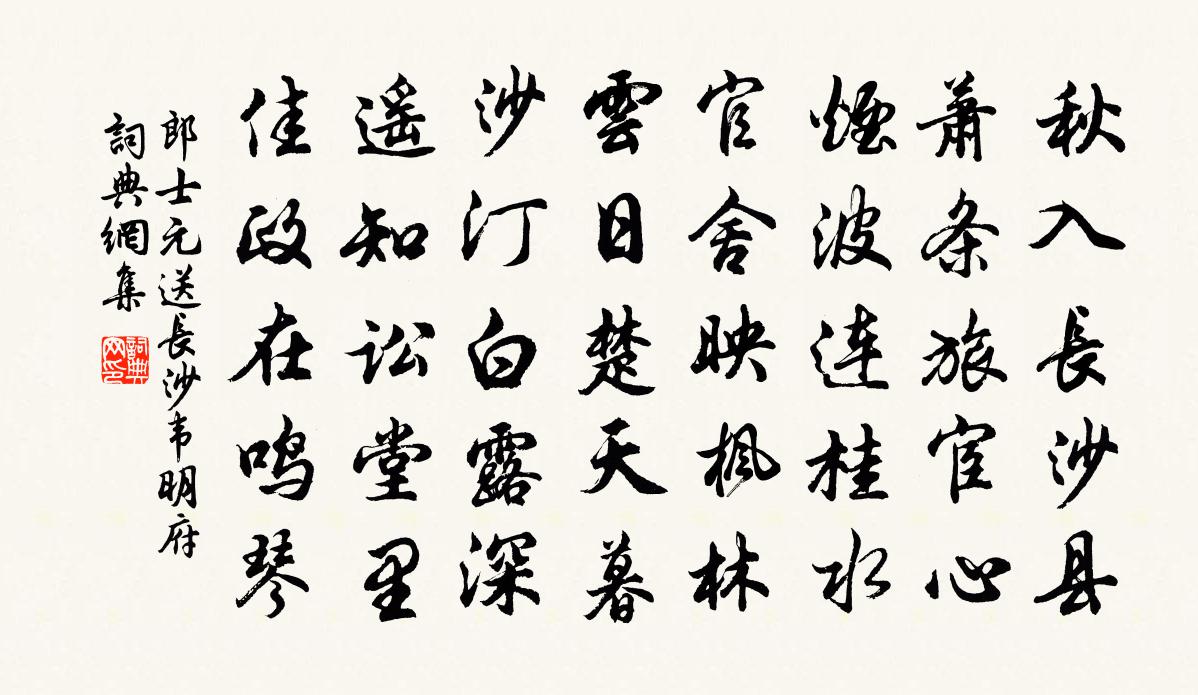 秋入長沙县
萧条旅宦心
煙波连桂水
官舍映楓林
雲日楚天暮
沙汀白露深
遥知讼堂里
佳政在鸣琴
郎士元送長沙韦明府
詞典網集
詞典网印